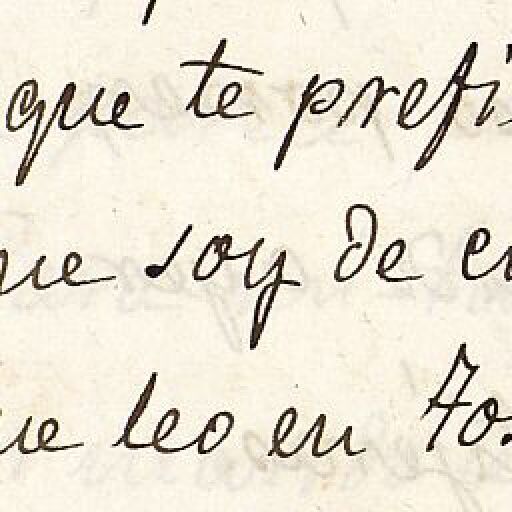 que te prefi
ue soy de
ue leo en